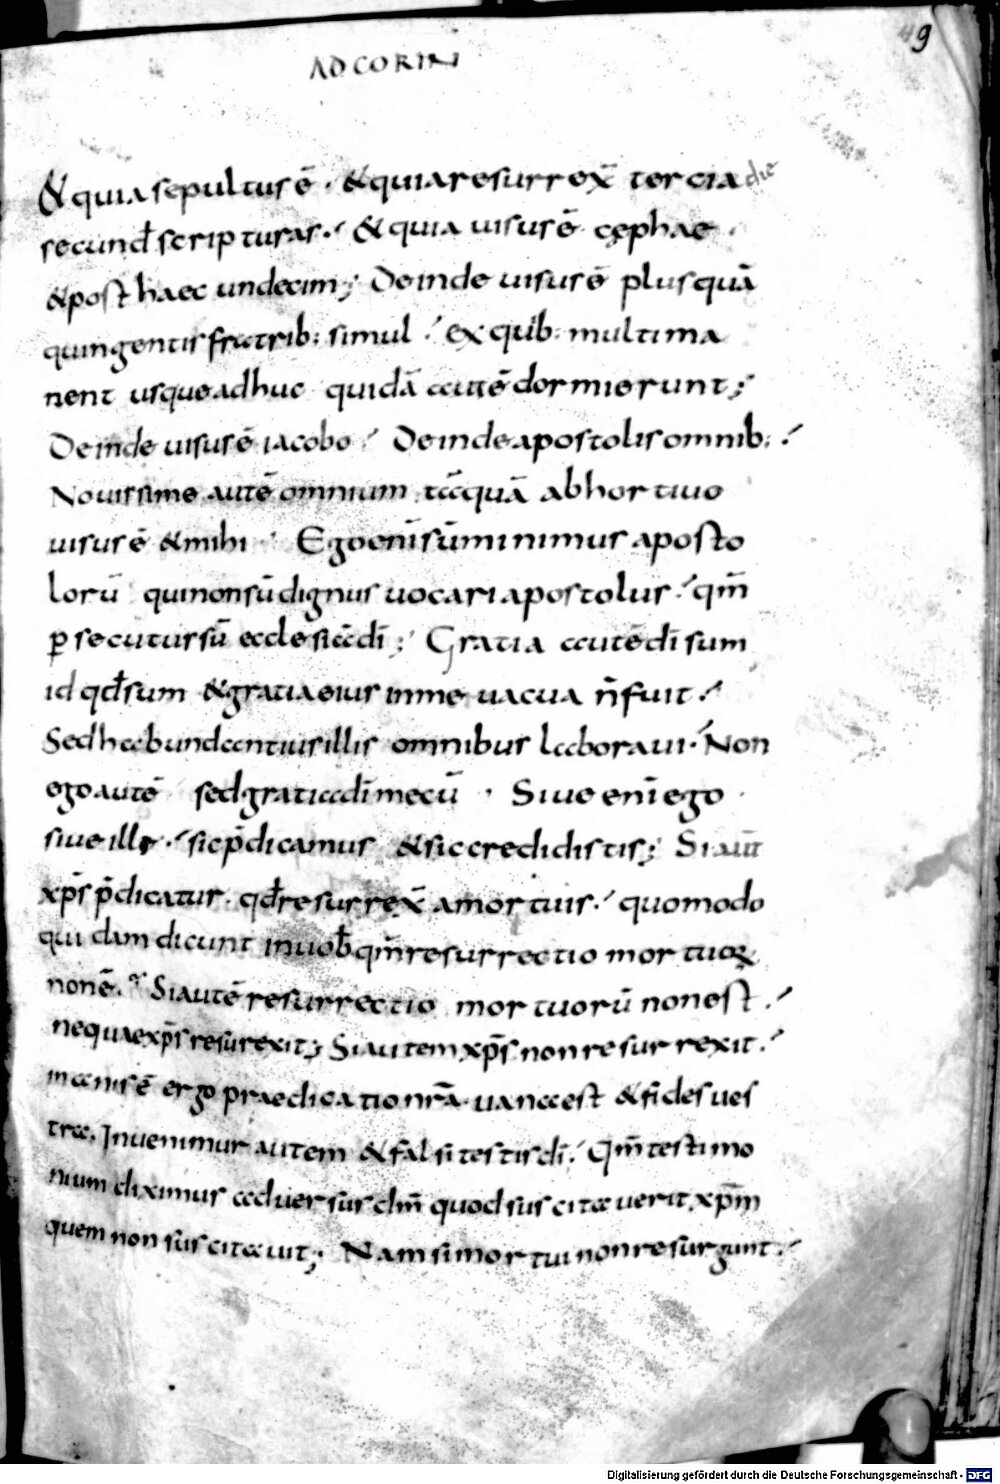 AD CORIN
49
& quia sepultus ē · & quia resurrex̄ tercia die
secund̄ scripturas · & quia uisus ē cęphae ·
& post haec undecim; Deinde uisus ē plus quā
quingentis fratrib: simul · ex quib: multi ma
nent usque adhuc quidā autē dormierunt;
Deinde uisus ē iacobo · Deinde apostolis omnib: ·
Nouissime autē omnium tāquā abhortiuo
uisus ē & mihi · Ego eni̅ sū minimus aposto
lorū qui non sū dignus uocari apostolus · qm̄
ꝑsecutus sū ecclesiā dī; Gratia autē dī sum
id qd̄ sum & gratia eius in me uacua n̄ fuit ·
Sed habundantius illis omnibus laboraui · Non
ego autē sed gratia dī mecū · Siue eni̅ ego ·
siue illi · sic p̄dicamus & sic credidistis; Si aut̄
xp̄s p̄dicatur · qd̄ resurrex̄ a mortuis · quomodo
quidam dicunt in uob̄ qm̄ resurrectio mortuoꝝ
non ē · Si autē resurrectio mortuorū non est ·
neque xp̄s resurexit; Si autem xp̄s non resurrexit ·
inanis ē ergo praedicatio nr̄a · uana est & fides ues
tra · Inuenimur autem & falsi testis dī · Qm̄ testimo
nium diximus aduersus dm̄ quod suscitauerit xp̄m
quem non suscitauit; Nam si mortui non resurgunt ·
Digitalisierung gefördert durch die Deutsche Forschungsgemeinschaft - DFG